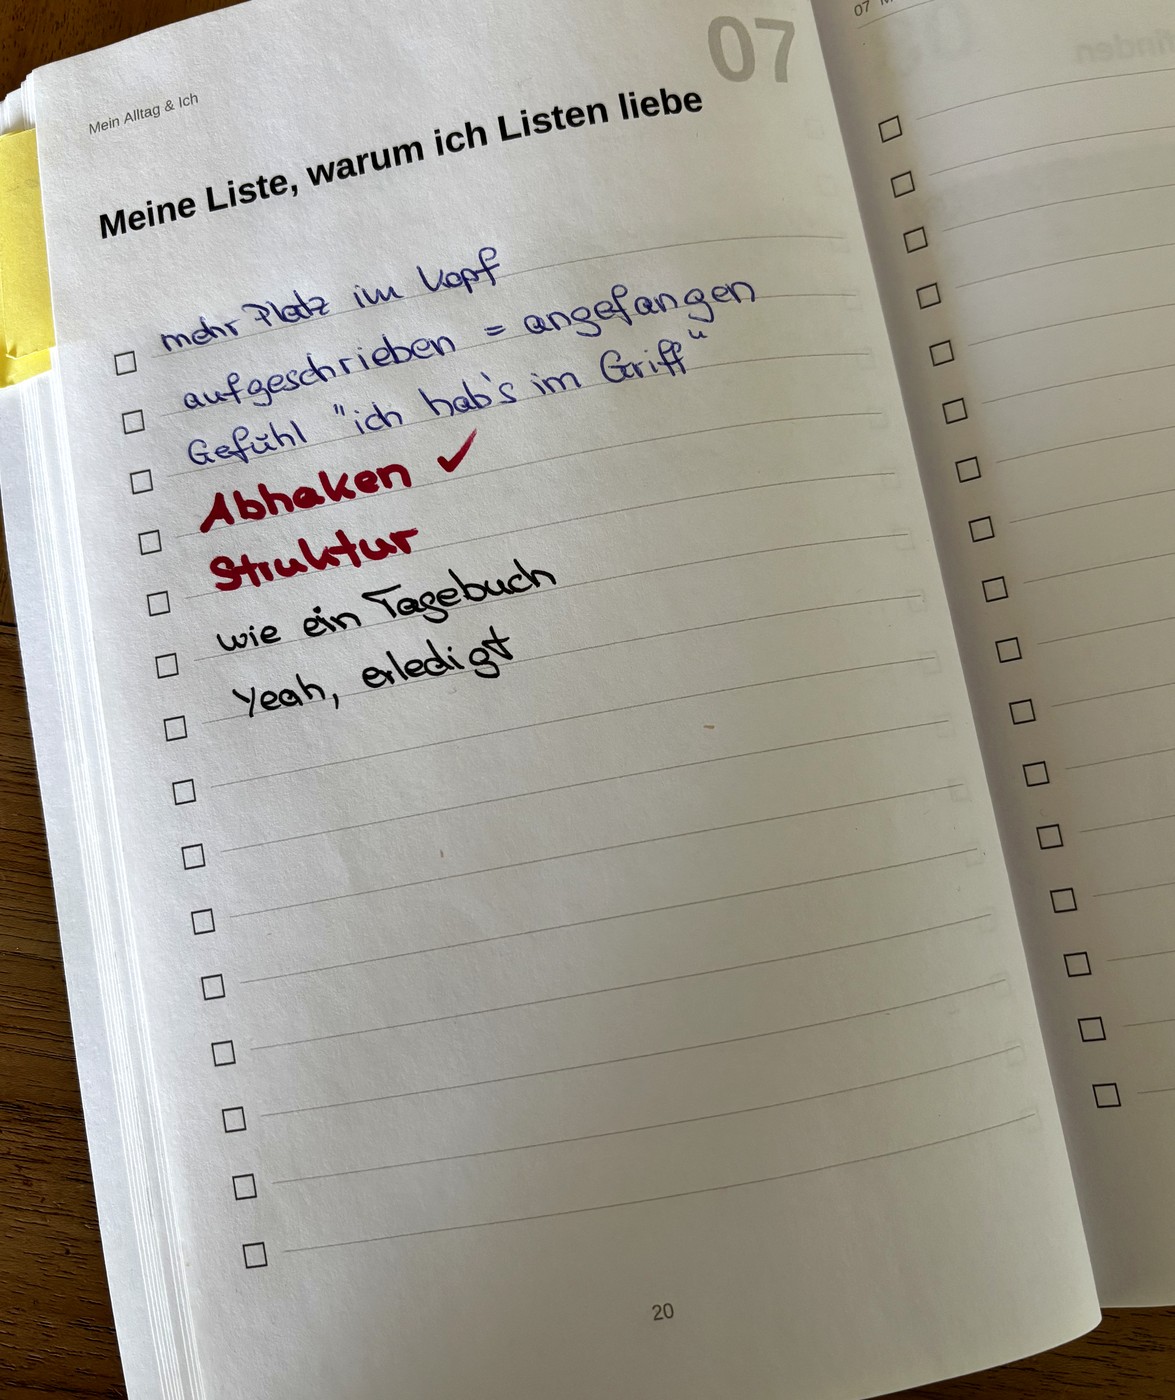 07
Mein Alltag & Ich
Meine Liste, warum ich Listen liebe
mehr Platz im Kopf
aufgeschrieben = angefangen
Gefühl "ich hab's im Griff"
Abhaken ✓
Struktur
wie ein Tagebuch
Yeah, erledigt
20
07